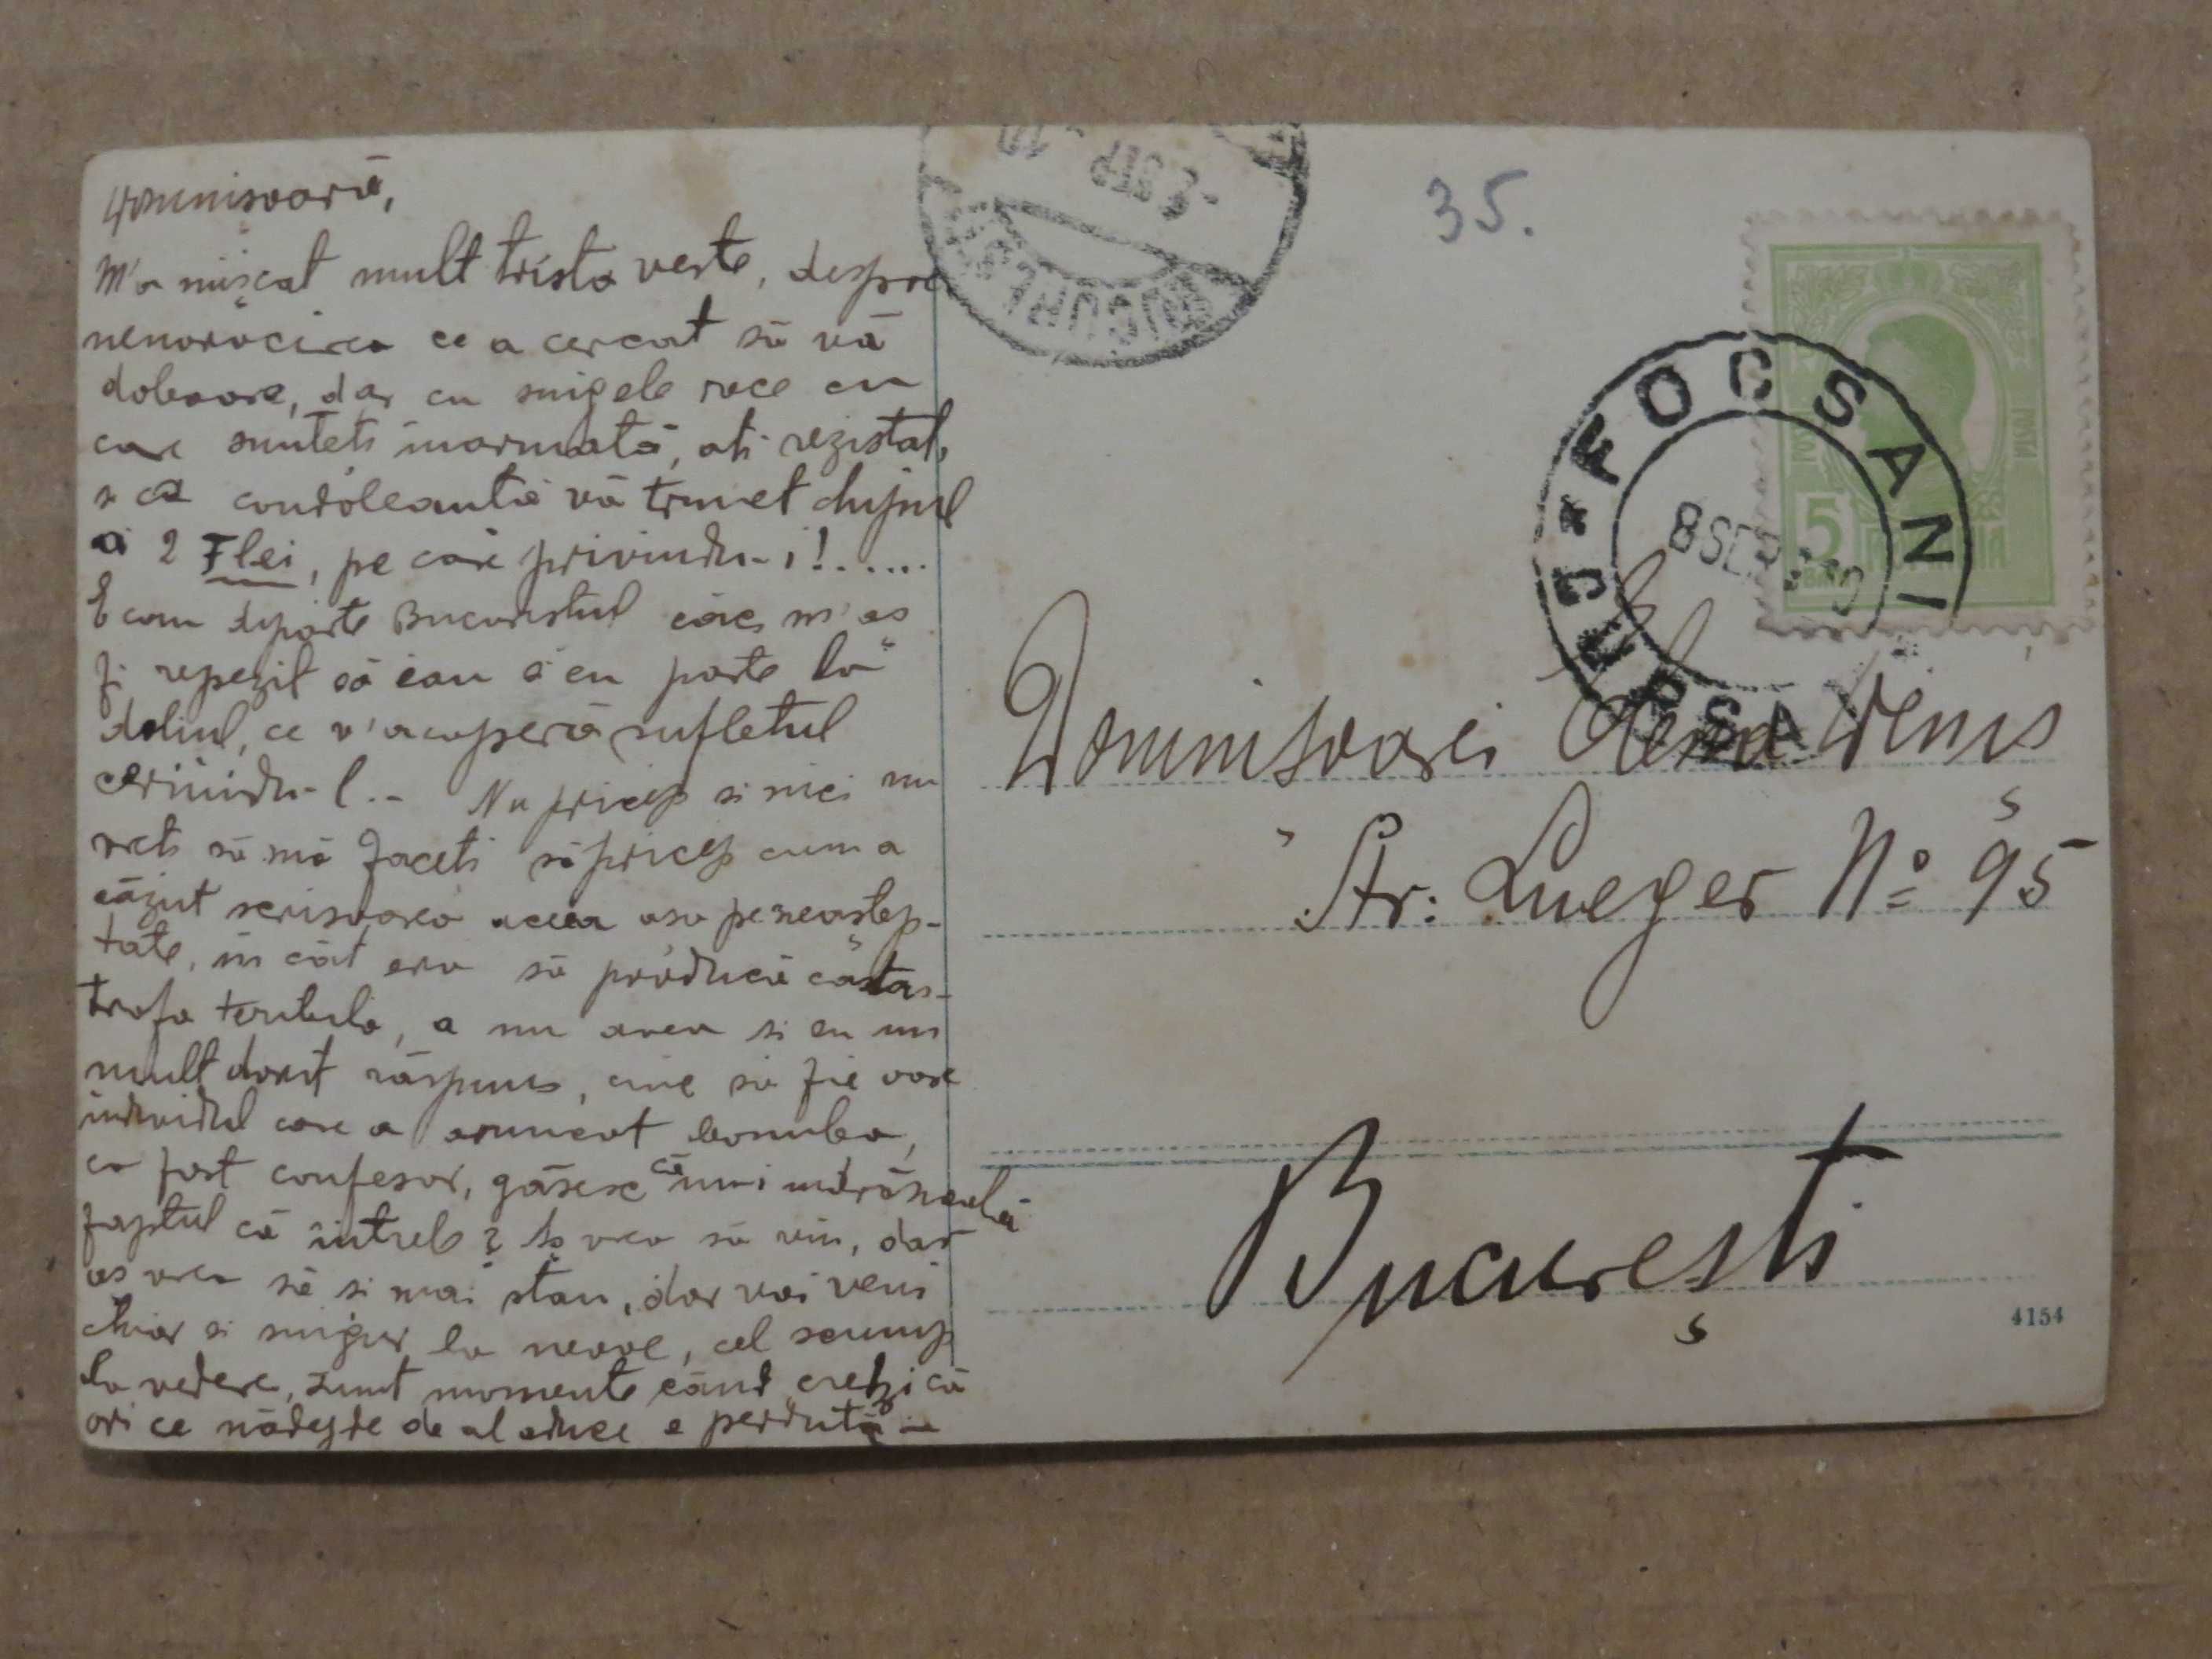 Domnișoară,
M'a mișcat mult trista veste, despre
nenorocirea ce a cercat să vă
doboare, dar cu sîngele rece cu
care sunteti înarmată, ati rezistat,
si ca condoleantă vă trimet chipul
a 2 Flei, pe care privindu-i!......
E cam departe Bucurestul căci m'as
fi repezit să iau si eu parte la
doliul, ce v'acuperă sufletul
cernindu-l.- Nu pricep si nici nu
vreti să mă faceti să pricep cum a
căzut scrisoarea aceea asa pe neastep-
tate, in cât era să producă catas-
trofa teribila, a nu avea si eu un
mult dorit răspuns, cine să fie oare
individul care a aruncat bomba,
ca fost confesor, găsesc că nu-i indrăsneală
faptul că intreb? As vrea să vin, dar
as vrea să si mai stau, dar voi veni
chiar si singur la nevoe, cel scump
la vedere, sunt momente când crezi că
ori ce nădejde de al aduce e perdută
BUCURESTI
SEP 10
35.
POSTA
5
FOCSANI
8 SEP 910
Domnișoarei Elena Denis
Str: Lueger No 95
București
4154